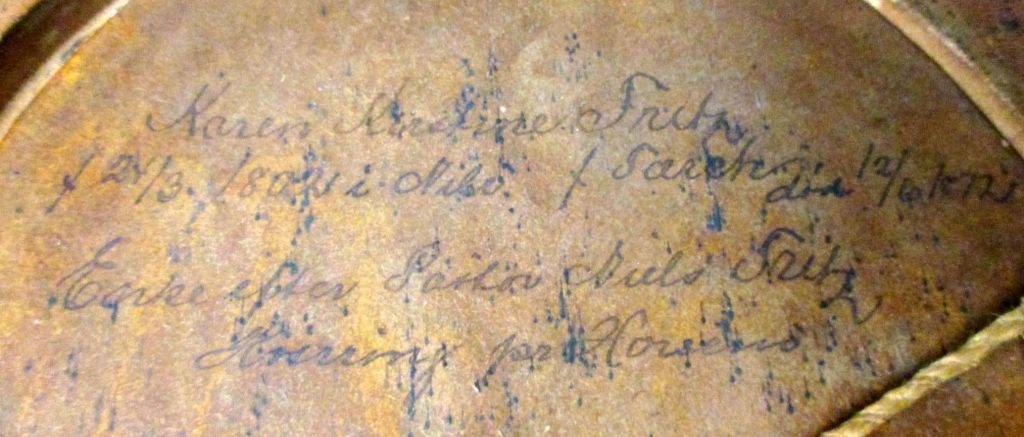 Karen Kirstine Fritz
f 24/3 1804 i Nibe f død 12/6 1872
Enke efter Pastor Niels Fritz
pr Horsens